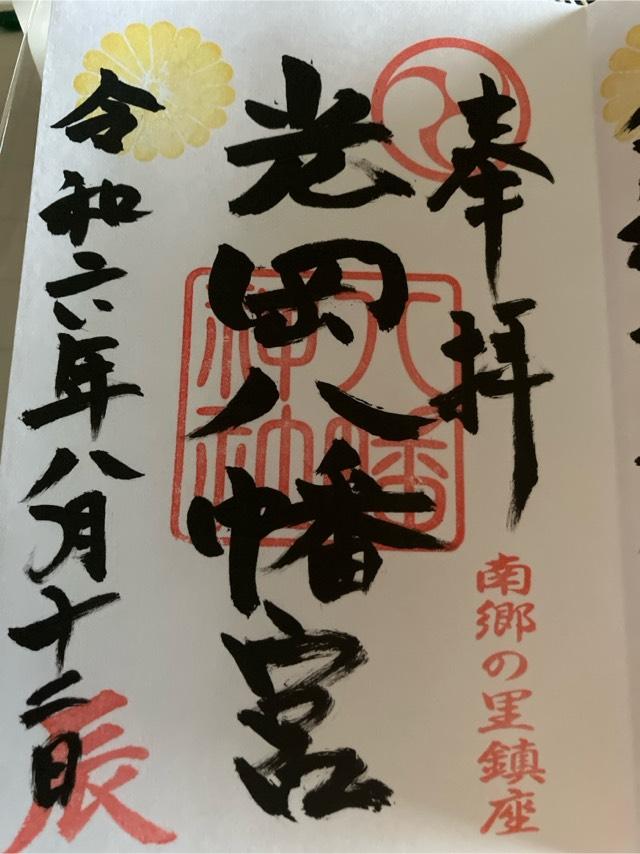 奉拝
南郷の里鎮座
八幡
神社
光岡八幡宮
令和六年八月十二日
辰